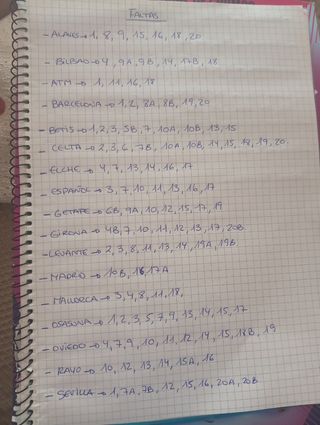 FALTAS
- ALAVES → 1, 8, 9, 15, 16, 18, 20
- BILBAO → 4, 9A, 9B, 14, 17B, 18
- ATM → 1, 11, 16, 18
- BARCELONA → 1, 2, 8A, 8B, 19, 20
- BETIS → 1, 2, 3, 5B, 7, 10A, 10B, 13, 15
- CELTA → 2, 3, 6, 7B, 10A, 10B, 14, 15, 18, 19, 20.
- ELCHE → 4, 7, 13, 14, 16, 17
- ESPAÑOL → 3, 7, 10, 11, 13, 16, 17
- GETAFE → 6B, 9A, 10, 12, 15, 17, 19
- GIRONA → 4B, 7, 10, 11, 12, 13, 17, 20B
- LEVANTE → 2, 3, 8, 11, 13, 14, 19A, 19B
- MADRID → 10B, 16, 17A
- MALLORCA → 3, 4, 8, 11, 18,
- OSASUNA → 1, 2, 3, 5, 7, 9, 13, 14, 15, 17
- OVIEDO → 4, 7, 9, 10, 11, 12, 14, 15, 18B, 19
- RAYO → 10, 12, 13, 14, 15A, 16
- SEVILLA → 1, 7A, 7B, 12, 15, 16, 20A, 20B